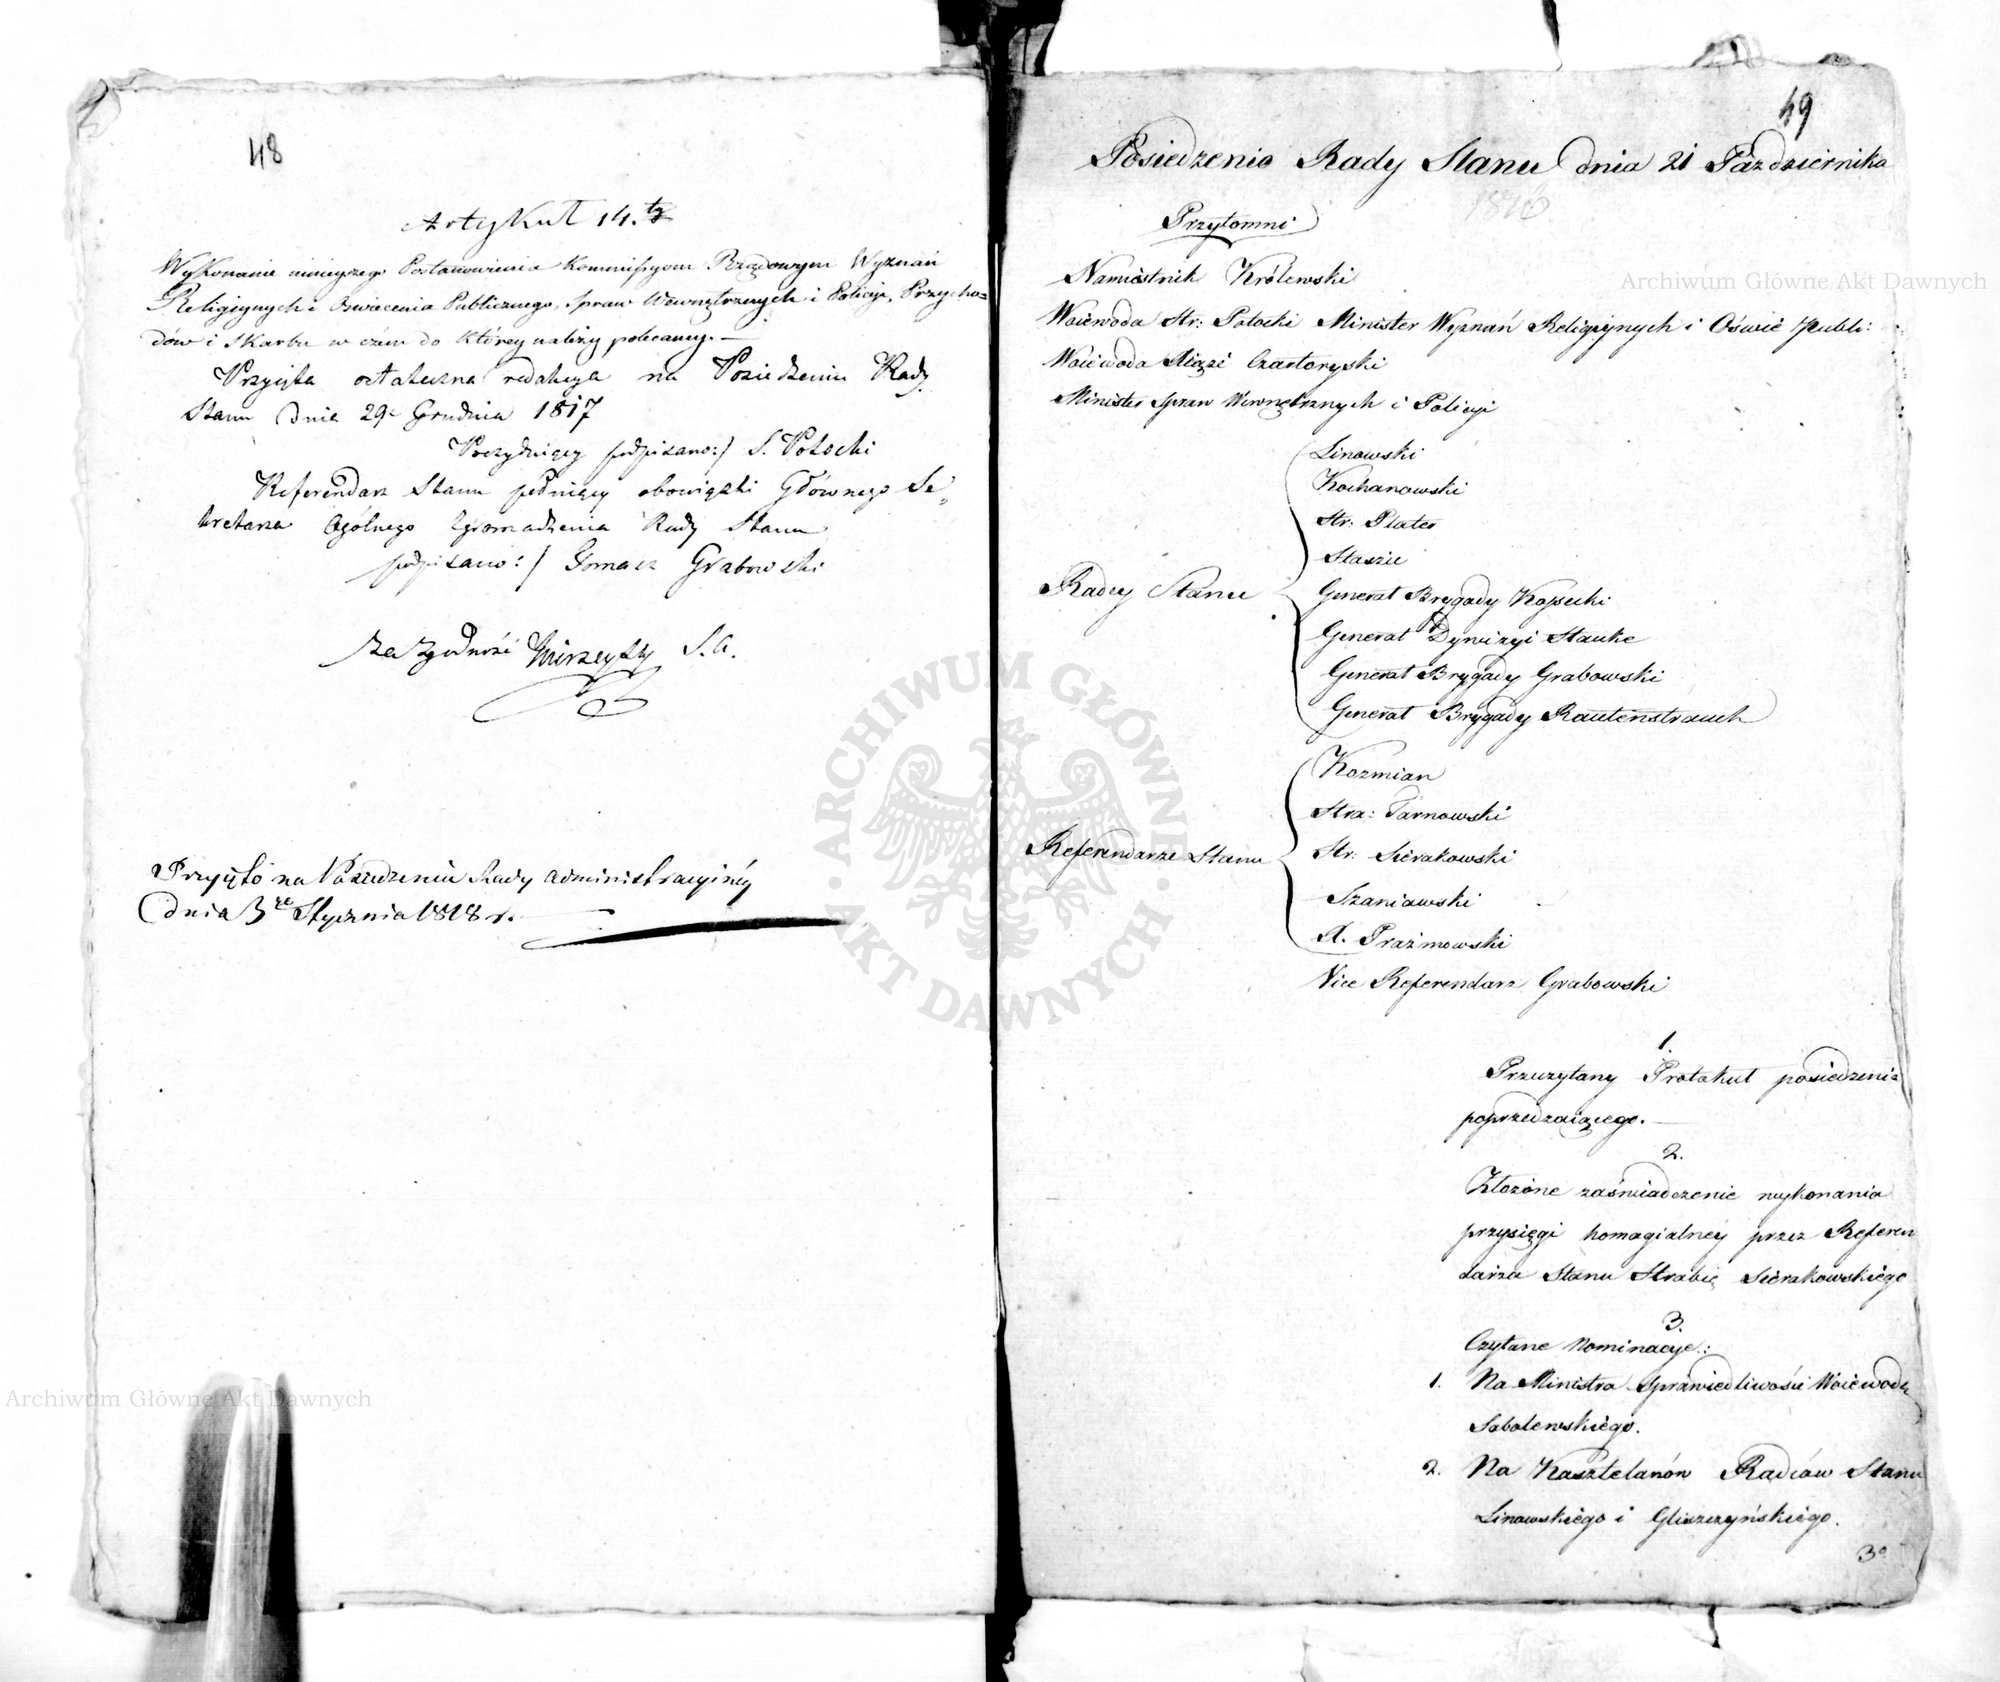 48
Artykuł 14.ty
Wykonanie ninieyszego Postanowienia Kommissyom Rządowym Wyznań
Religiynych i Oswiecenia Publicznego, Spraw Wewnętrznych i Policyi, Przycho=
dów i Skarbu w czém do którey należy polecamy.—
Przyięta ostateczna redakcya na Posiedzeniu Rady
Stanu dnia 29 Grudnia 1817
Prezyduiący podpisano:/ S. Potocki
Referendarz Stanu pełniący obowiązki Głównego Se=
kretarza Ogólnego Zgromadzenia Rady Stanu
podpisano:/ Tomasz Grabowski
Za Zgodność S.A.
Przyięto na Posiedzeniu Rady Administracyiney
dnia 3 Stycznia 1818 r.
49
Posiedzenie Rady Stanu dnia 21 Pazdziernika
1816
Przytomni
Namiéstnik Królewski
Woiewoda Str: Potocki Minister Wyznań Religiynych i Oświé Publi:
Woiewoda Xiążę Czartoryski
Minister Spraw Wewnętrznych i Policyi
Linowski
Kochanowski
Str: Plater
Staszic
Radcy Stanu
Generał Brygady Kossecki
Generał Dywizyi Hauke
Generał Brygady Grabowski
Generał Brygady Rautenstrauch
Kozmian
Stra: Tarnowski
Referendarze Stanu
Str: Sierakowski
Szaniawski
X. Prażmowski
Vice Referendarz Grabowski
1.
Przeczytany Protokuł posiedzenia
poprzedzaiącego.—
2.
Złożone zaświadczenie wykonania
przysięgi homagialnéy przez Referen
darza Stanu Hrabię Sierakowskiégo
3.
Czytane Nominacye:
1. Na Ministra Sprawiedliwości Woiewodę
Sobolewskiégo.
2. Na Kasztelanów Radców Stanu
Linowskiégo i Gliszczyńskiégo.
3º
Archiwum Główne Akt Dawnych
Archiwum Główne Akt Dawnych
ARCHIWUM GŁÓWNE AKT DAWNYCH